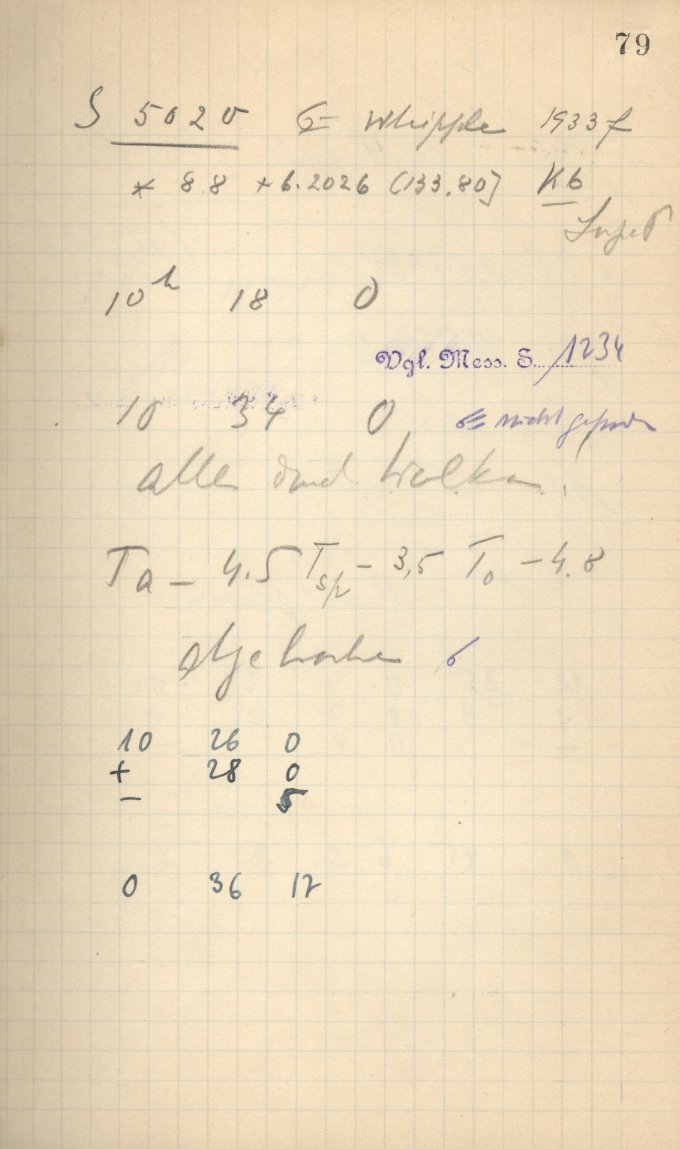 79
S 5020 ☄ Whipple 1933 f
* 8.8 +6.2026 (133.80] Kb
10ʰ 18 0
Vgl. Mess. S. 1234
10 34 0 ☄ nicht gefunden
alles durch Wolken
Ta – 4.5 Tsp – 3,5 To – 4.8
abgebrochen
10 26 0
+ 28 0
– 5
0 36 12